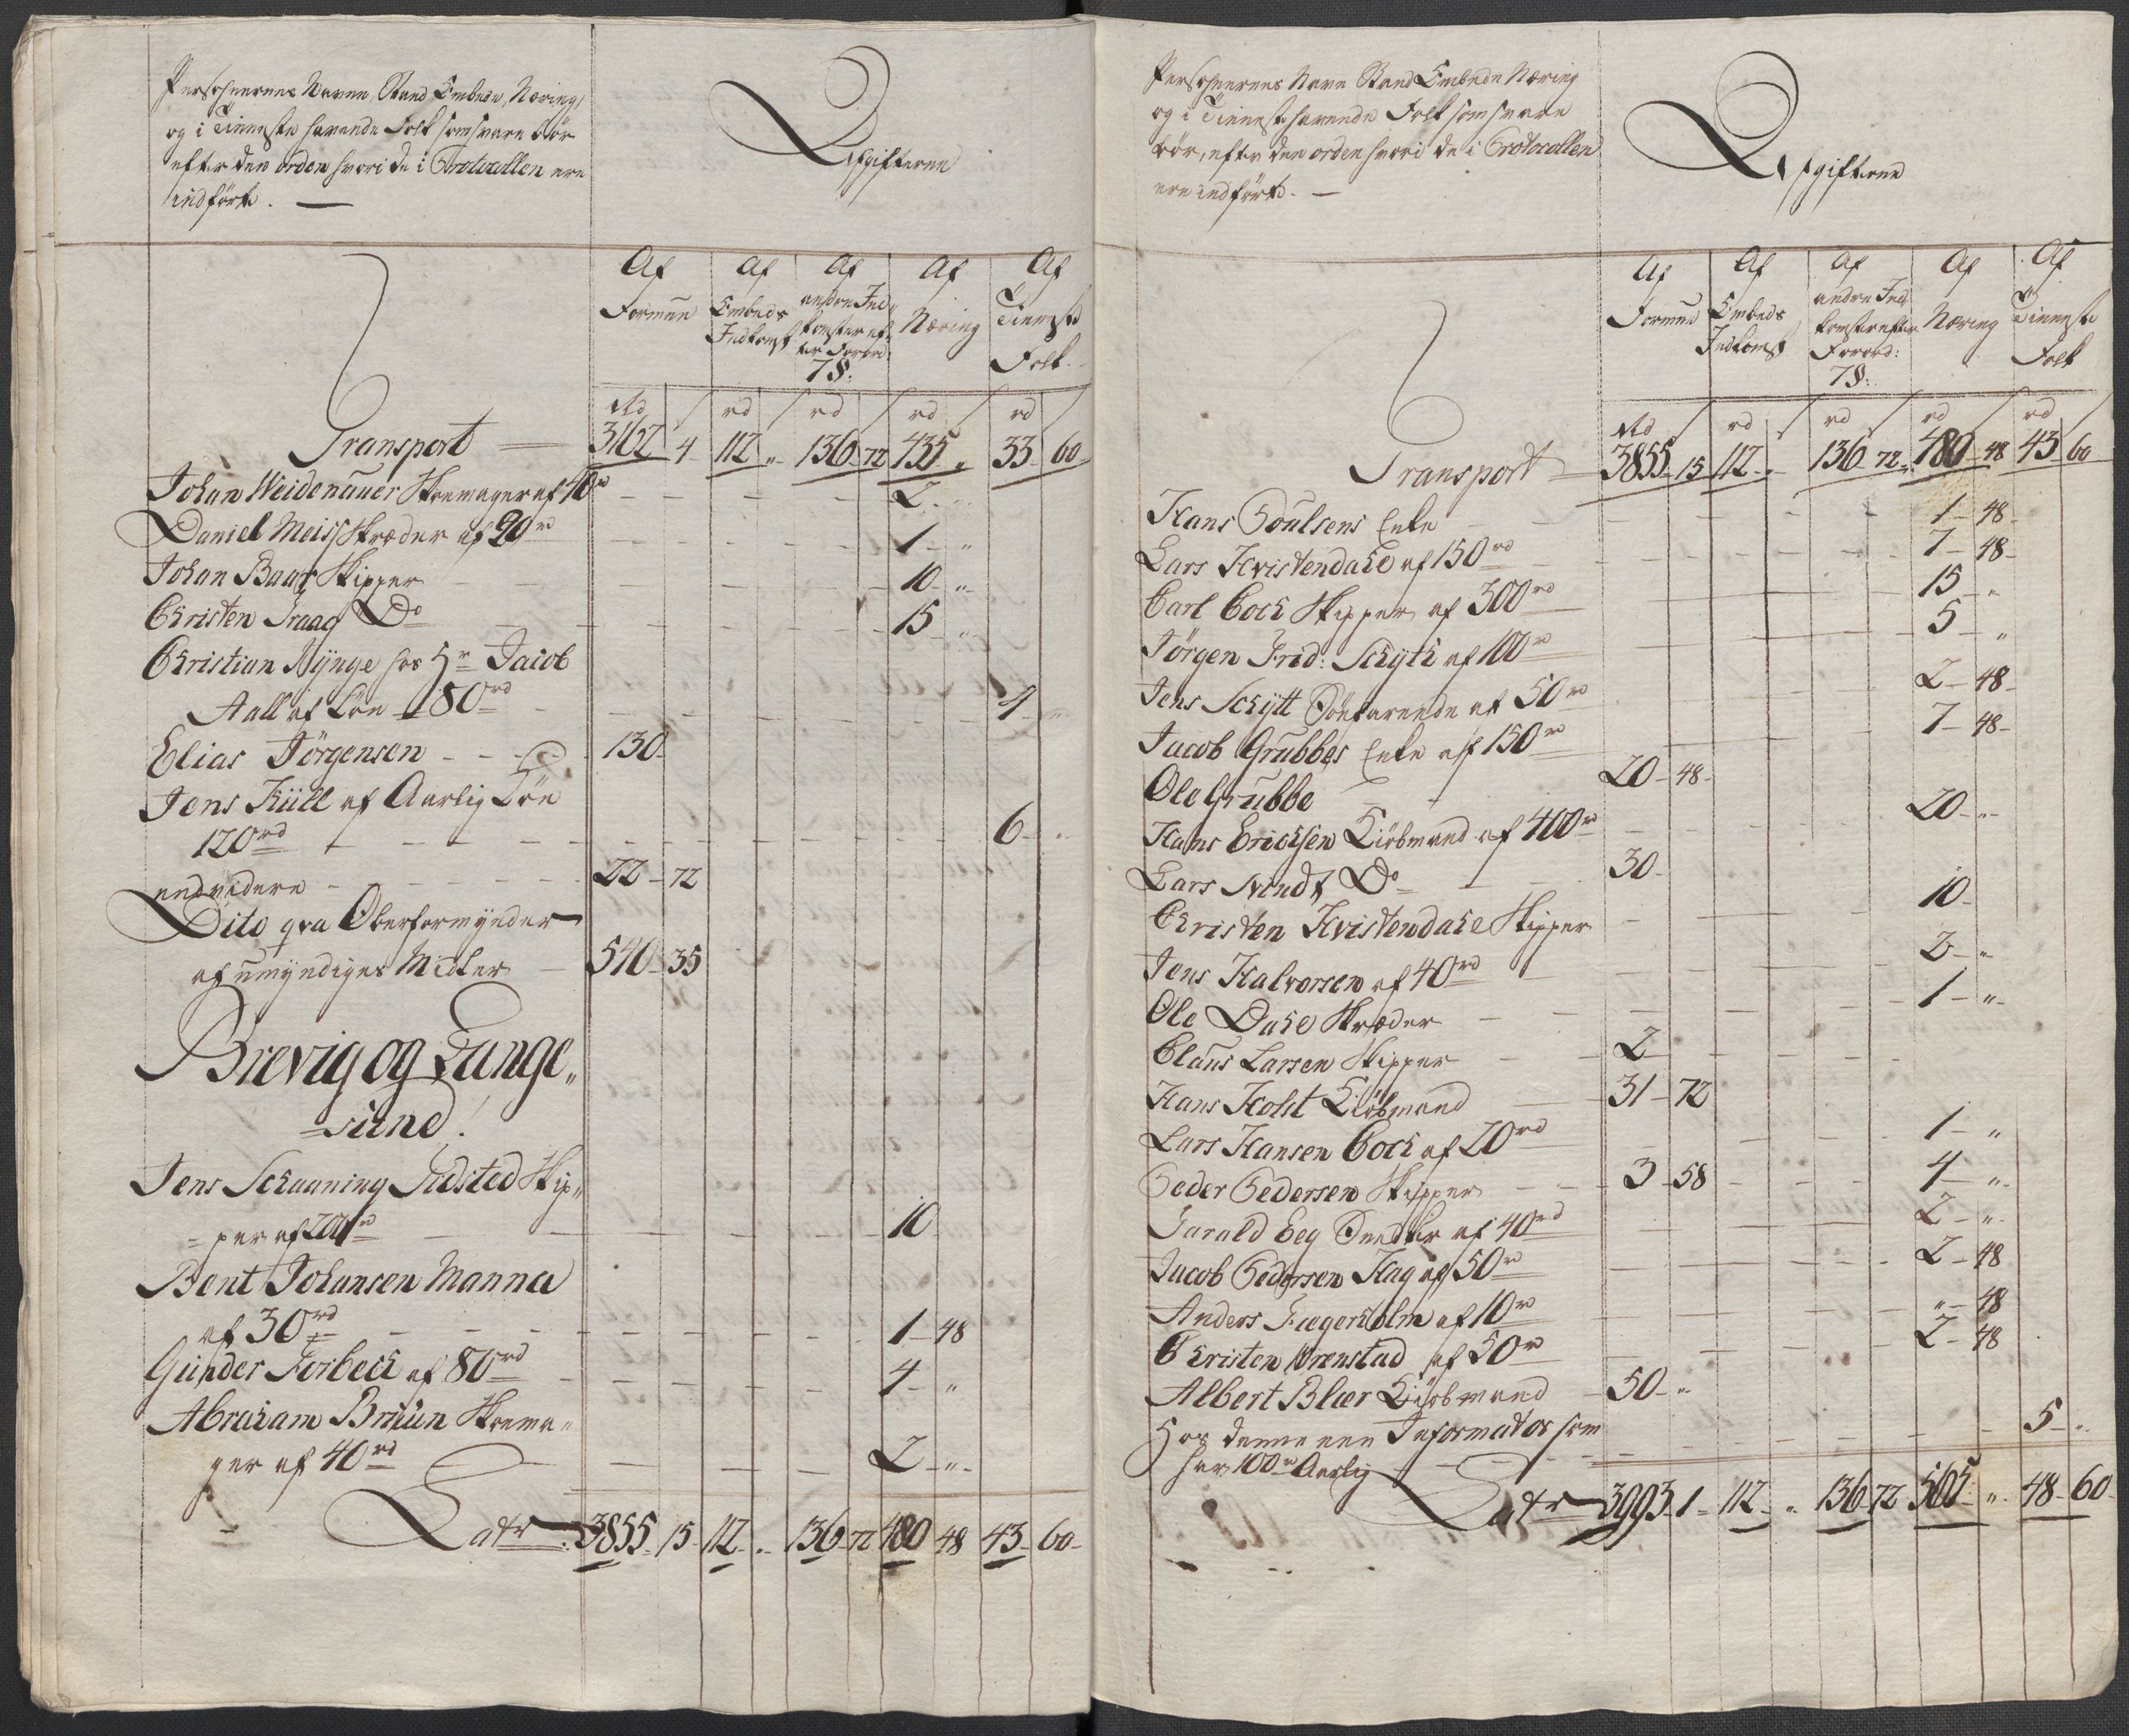 Persohnernes Navne, Stand Embede, Næring,
og i Tienneste havende Folk som svare bør
efter den orden hvori de i Protocollen ere
indførte. —
Afgifterne
Af Formue
Af Embeds Indkomst
Af andre Indkomster efter Forord: 7 §:
Af Næring
Af Tienneste Folk
Rd / rd / rd / rd / rd /
Transport — 3162 4 112 „ 136 72 435 „ 33 60
Johan Weidenauer Skomager af 40 rd — 2
Daniel Meiss Skræder af 20 rd — 1 „
Johan Baar Skipper — 10 „
Christen Traag Do — 15 „
Christian Nÿnge hos Hr Jacob
Aall af Løn 80 rd — 4 „
Elias Jörgensen — 130
Jens Küll af Aarlig Løn
120 rd — 6 „
endvidere — 22 72
Dito qva Oberformÿnder
af umÿndiges Midler — 540 35
Brevig og Lange„
=sund!
Jens Schaaning Sidsted Skip„
=per af 200 rd — 10
Bent Johansen Manna
af 30 rd — 1 48
Gunder Forbech af 80 rd — 4 „
Abraham Bruun Skoma„
ger af 40 rd — 2 „
Latr 3855 15 112 „ 136 72 480 48 43 60
Persohnernes Navne Stand Embede Næring
og i Tienneste havende Folk som svare
bør, efter den orden hvori de i Protocollen
ere indførte. —
Afgifterne
Af Formue
Af Embeds Indkomst
Af andre Indkomster efter Forord: 7 §:
Af Næring
Af Tienneste Folk
Rd / rd / rd / rd / rd /
Transport 3855 15 112 „ 136 72 480 48 43 60
Hans Poulsens Enke — 1 48
Lars Kvistendahl af 150 rd — 7 48
Carl Coch Skipper af 300 rd — 15 „
Jörgen Frid: Schÿth af 100 rd — 5 „
Jens Schÿtt Söefarende af 50 rd — 2 48
Jacob Grubbes Enke af 150 rd — 7 48
Ole Grubbe — 20 48
Hans Erichsen Kiöbmand af 400 rd — 20 „
Lars Svindt Do — 30
Christen Kvistendahl Skipper — 10
Jens Halvorsen af 40 rd — 2 „
Ole Dahl Skræder — 1 „
Claus Larsen Skipper — 2
Hans Holst Kiöbmand — 31 72
Lars Hansen Coch af 20 rd — 1 „
Peder Pedersen Skipper — 3 58 — 4 „
Harald Eeg Snedker af 40 rd — 2 „
Jacob Pedersen Hag af 50 rd — 2 48
Anders Fægerholm af 10 rd — „ 48
Christen Ørenstad af 50 rd — 2 48
Albert Blær Kiöbmand — 50 „
Hos denne een Informator som
har 100 rd Aarlig — 5 „
Latr 3993 1 112 „ 136 72 565 „ 48 60